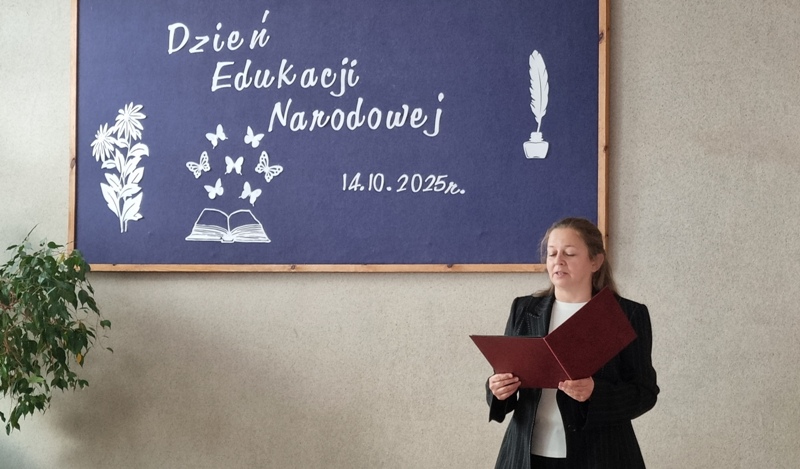 Dzień
Edukacji
Narodowej
14.10.2025r.